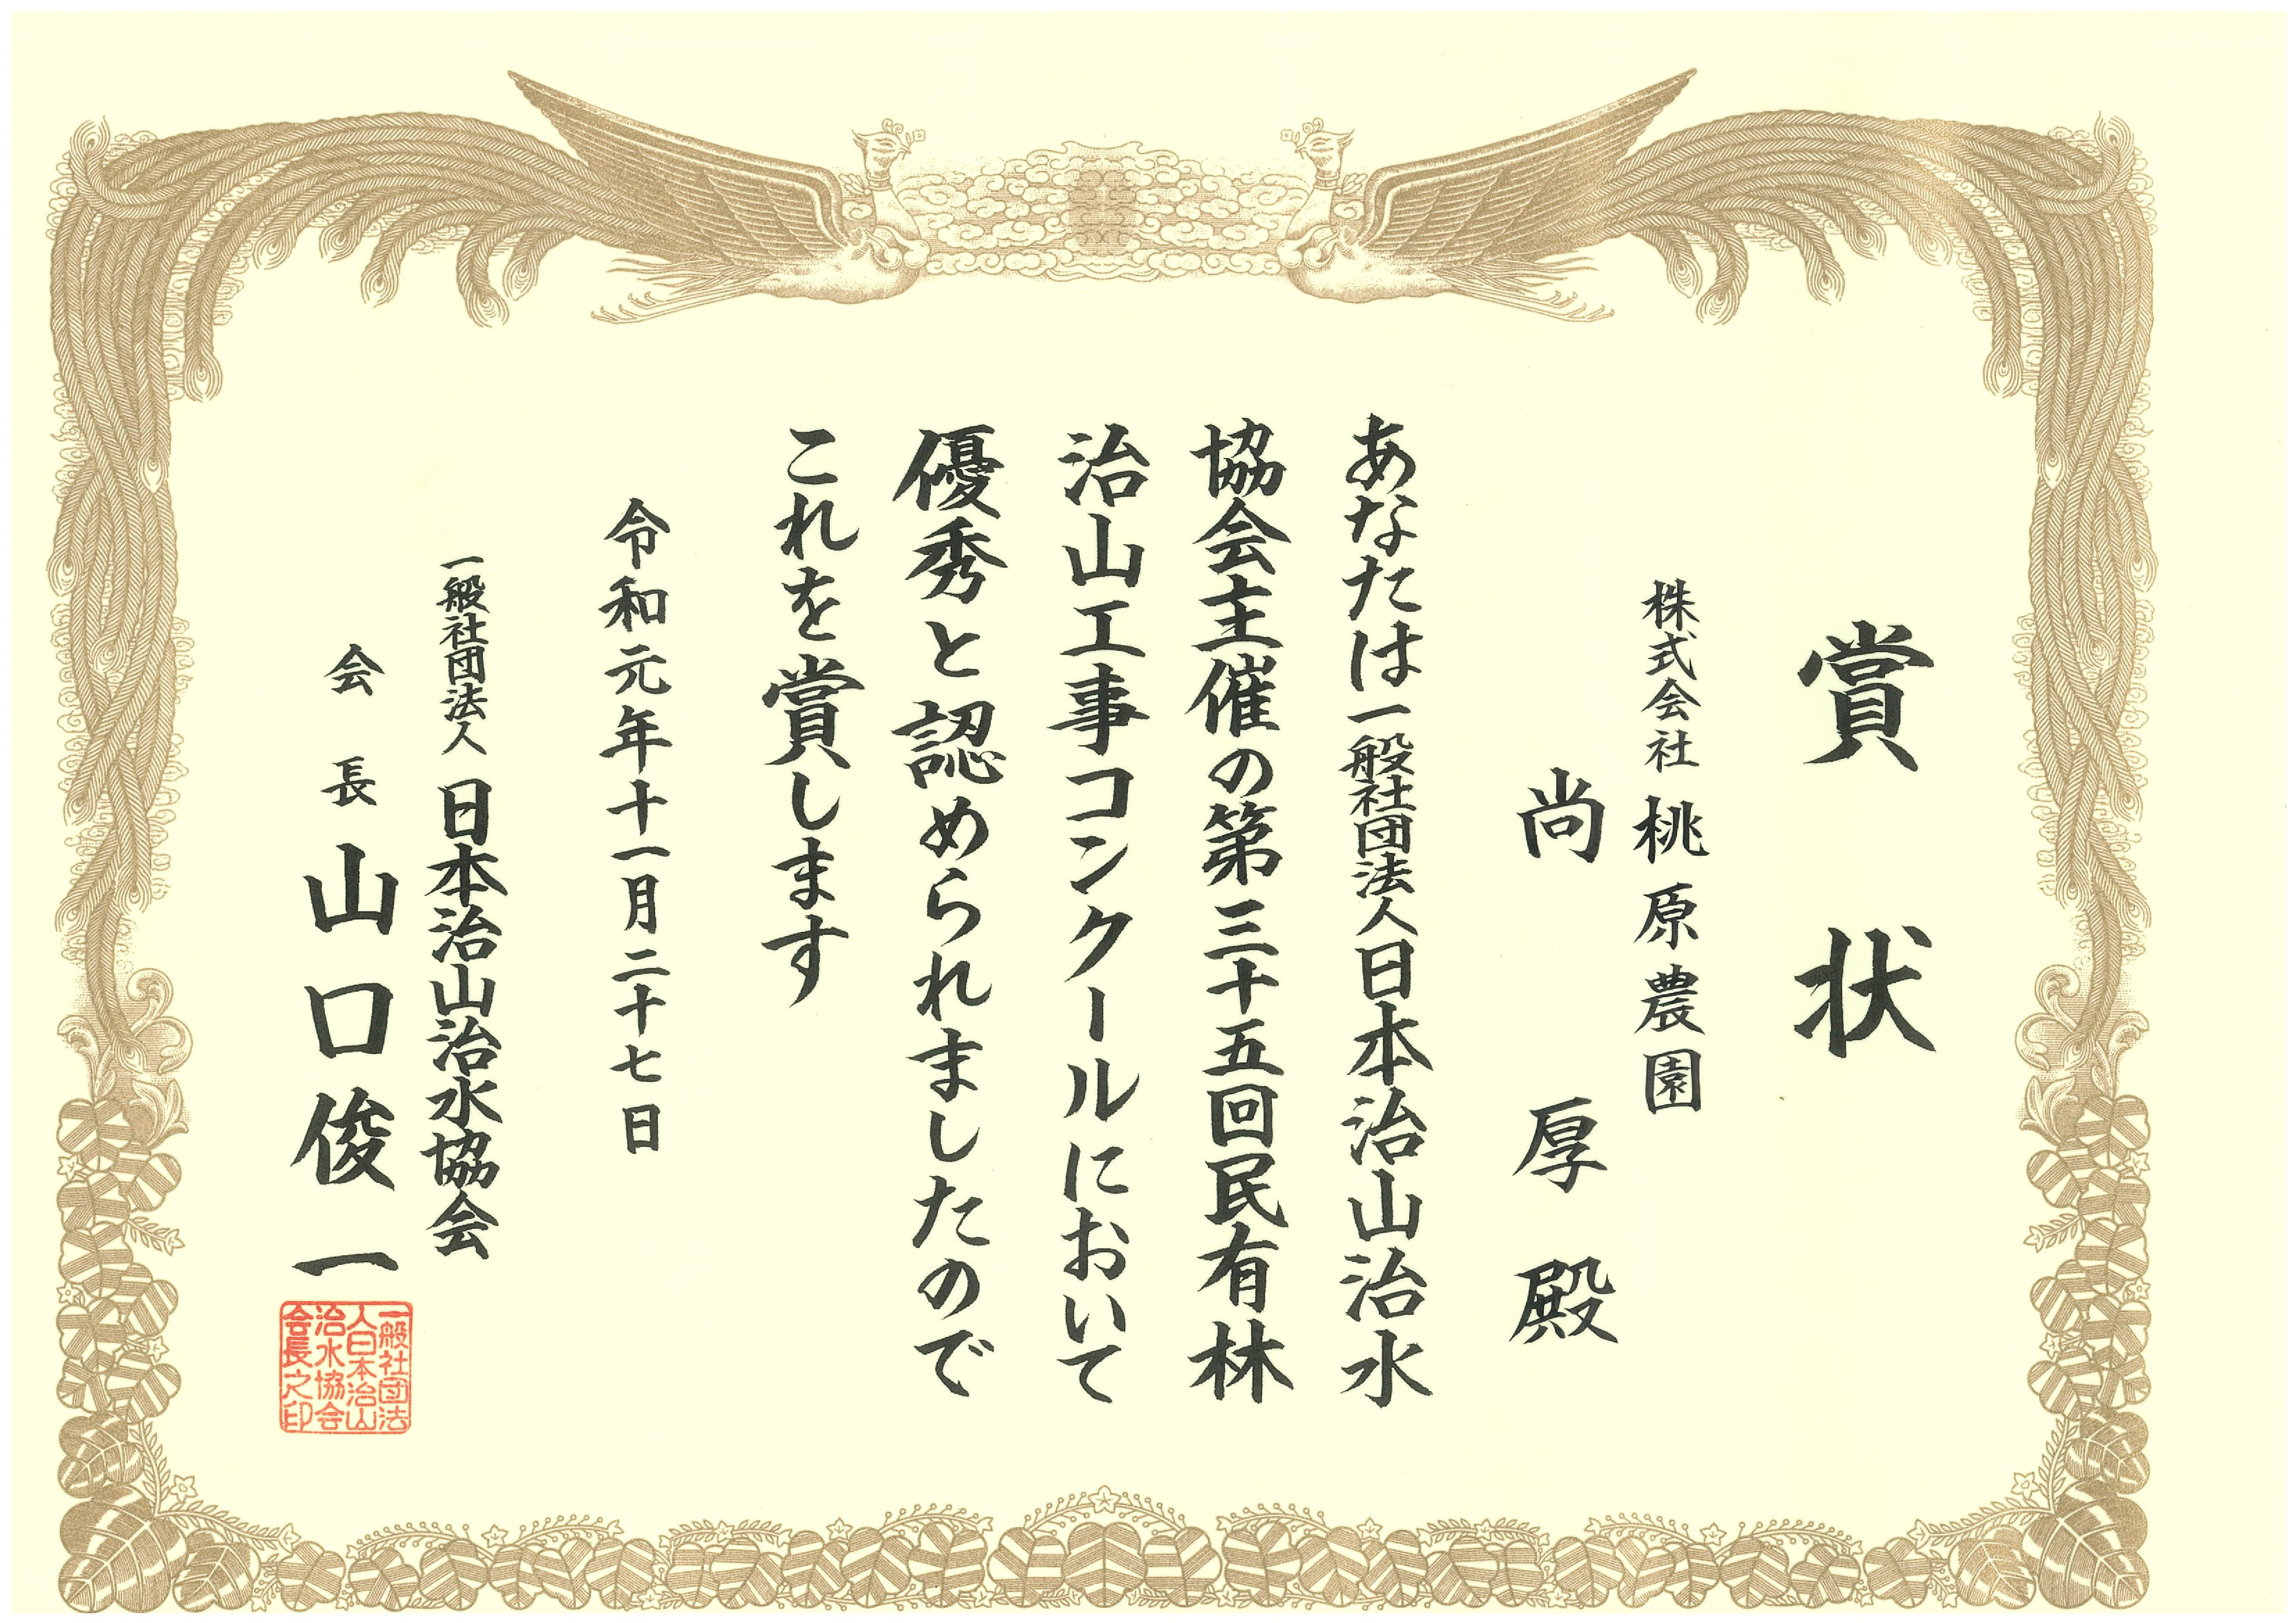 賞状
株式会社 桃原農園
尚 厚 殿
あなたは一般社団法人日本治山治水
協会主催の第三十五回民有林
治山工事コンクールにおいて
優秀と認められましたので
これを賞します
令和元年十一月二十七日
一般社団法人 日本治山治水協会
会長 山口俊一
一般社団法
人日本治山
治水協会
会長之印